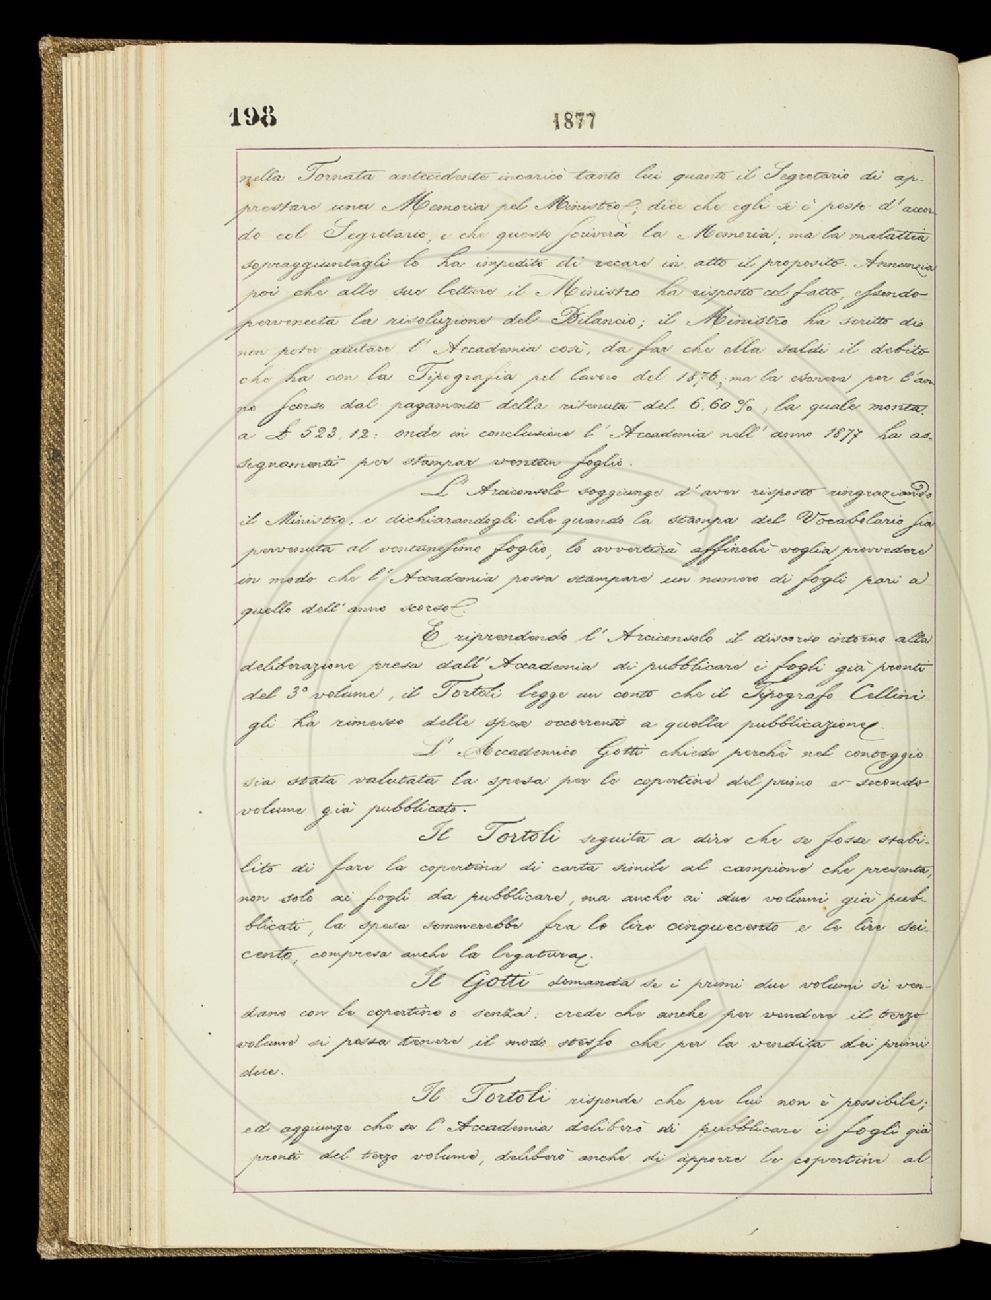 198
1877
nella Tornata antecedente incaricò tanto lui quanto il Segretario di ap-
prestare una Memoria pel Ministro; dice che egli si è posto d'accor-
do col Segretario, e che questo scriverà la Memoria; ma la malattia
sopraggiuntagli lo ha impedito di recare in atto il proposito. Annunzia
poi che alle sue lettere il Ministro ha risposto col fatto, essendo
pervenuta la risoluzione del Bilancio; il Ministro ha scritto di
non poter aiutare l'Accademia così, da far che ella saldi il debito
che ha con la Tipografia pel lavoro del 1876; ma la esonera per l'an-
no scorso dal pagamento della ritenuta del 6,60 %, la quale monta
a £ 523,12: onde in conclusione l'Accademia nell'anno 1877 ha as-
segnamenti per stampar ventun foglio.
L'Arciconsolo soggiunge d'aver risposto ringraziando
il Ministro, e dichiarandogli che quando la stampa del Vocabolario sia
pervenuta al ventunesimo foglio, lo avvertirà affinchè voglia provvedere
in modo che l'Accademia possa stampare un numero di fogli pari a
quello dell'anno scorso.
E riprendendo l'Arciconsolo il discorso intorno alla
deliberazione presa dall'Accademia di pubblicare i fogli già pronti
del 3° volume, il Tortoli legge un conto che il Tipografo Cellini
gli ha rimesso delle spese occorrenti a quella pubblicazione.
L'Accademico Gotti chiede perchè nel conteggio
sia stata valutata la spesa per le copertine del primo e secondo
volume già pubblicato.
Il Tortoli seguita a dire che se fosse stabi-
lito di fare la copertina di carta simile al campione che presenta,
non solo ai fogli da pubblicare, ma anche ai due volumi già pub-
blicati, la spesa sommerebbe fra le lire cinquecento e le lire sei-
cento, compresa anche la legatura.
Il Gotti domanda se i primi due volumi si ven-
dano con le copertine o senza: crede che anche per vendere il terzo
volume si possa tenere il modo stesso che per la vendita dei primi
due.
Il Tortoli risponde che per lui non è possibile;
ed aggiunge che se l'Accademia deliberò di pubblicare i fogli già
pronti del terzo volume, deliberò anche di apporre le copertine al